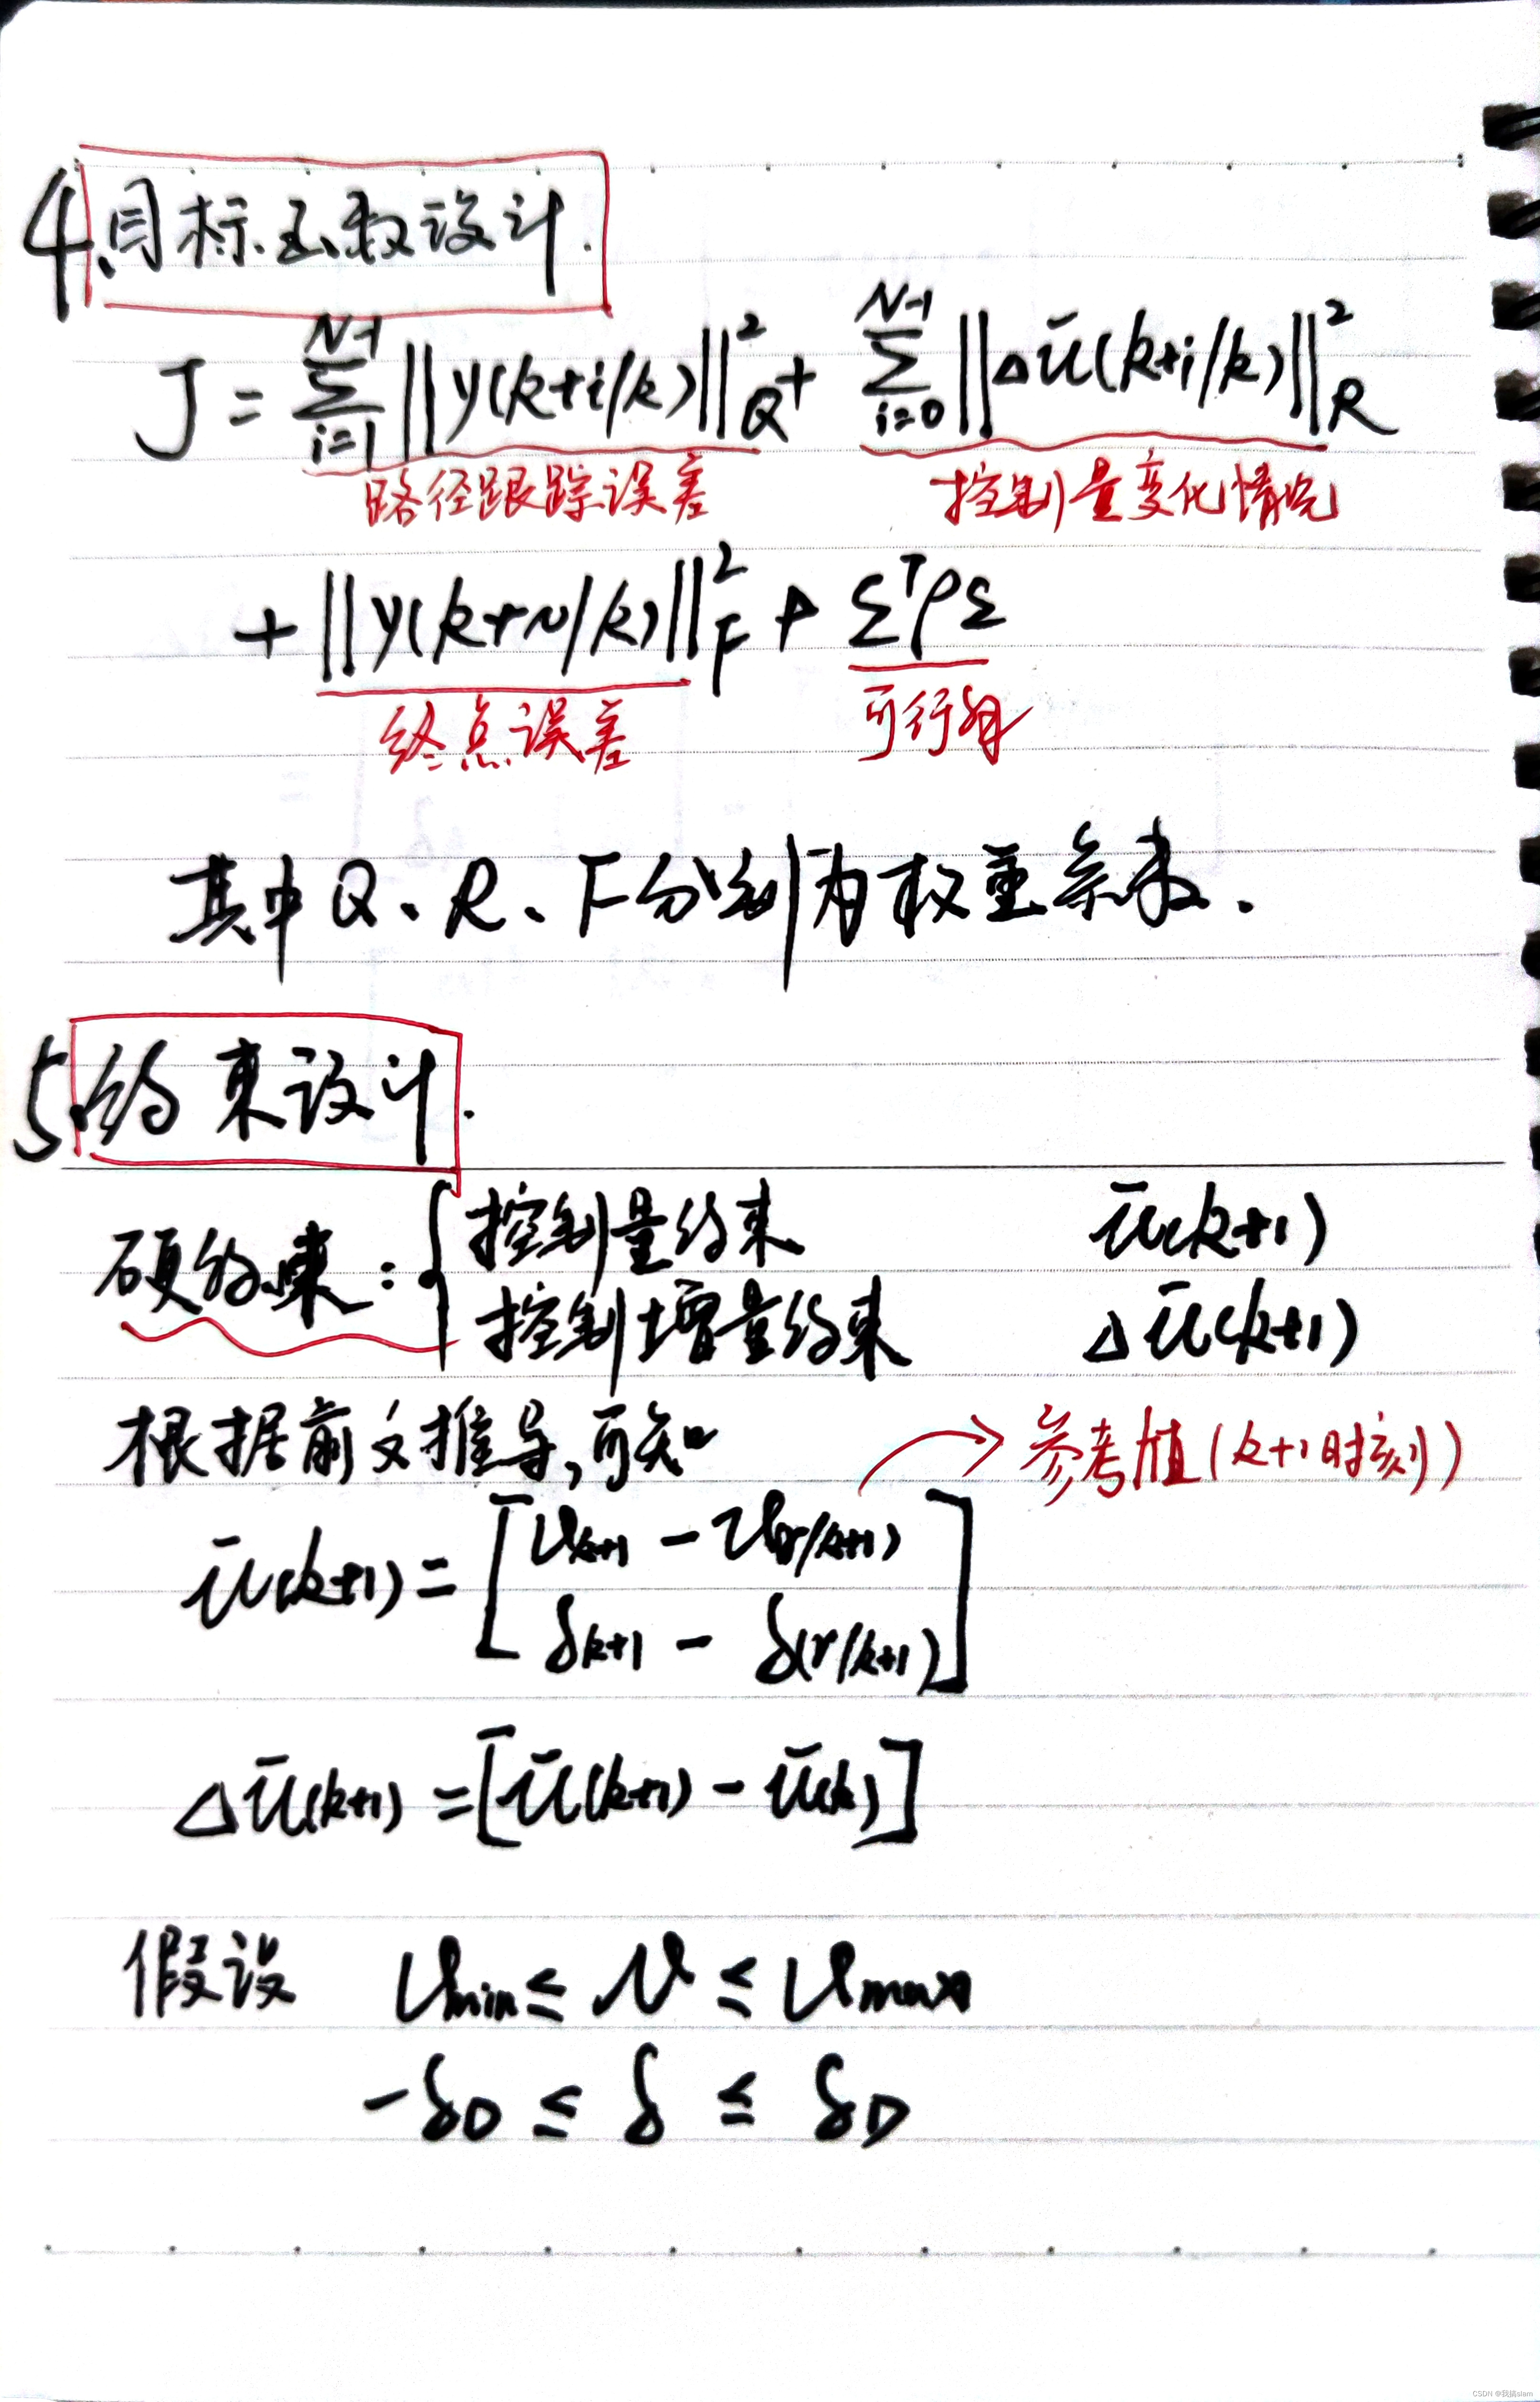 4、目标函数设计.
J = \sum_{i=1}^{N-1} ||y(k+i/k)||^2_Q + \sum_{i=0}^{N-1} ||Δũ(k+i/k)||^2_R
路径跟踪误差 控制量变化情况
+ ||y(k+N/k)||^2_F + Σ^T ρ Σ
终点误差 可行解
其中 Q、R、F分别为权重系数.
5.约束设计.
硬约束: { 控制量约束 ũ(k+1)
控制增量约束 Δũ(k+1)
根据前文推导,可知 → 参考值(k+1时刻)
ũ(k+1) = [ v_{k+1} - v_{(r/k+1)}
δ_{k+1} - δ_{(r/k+1)} ]
Δũ(k+1) = [ũ(k+1) - ũ(k)]
假设 v_{min} ≤ v ≤ v_{max}
-δ_D ≤ δ ≤ δ_D
CSDN @我搞slam